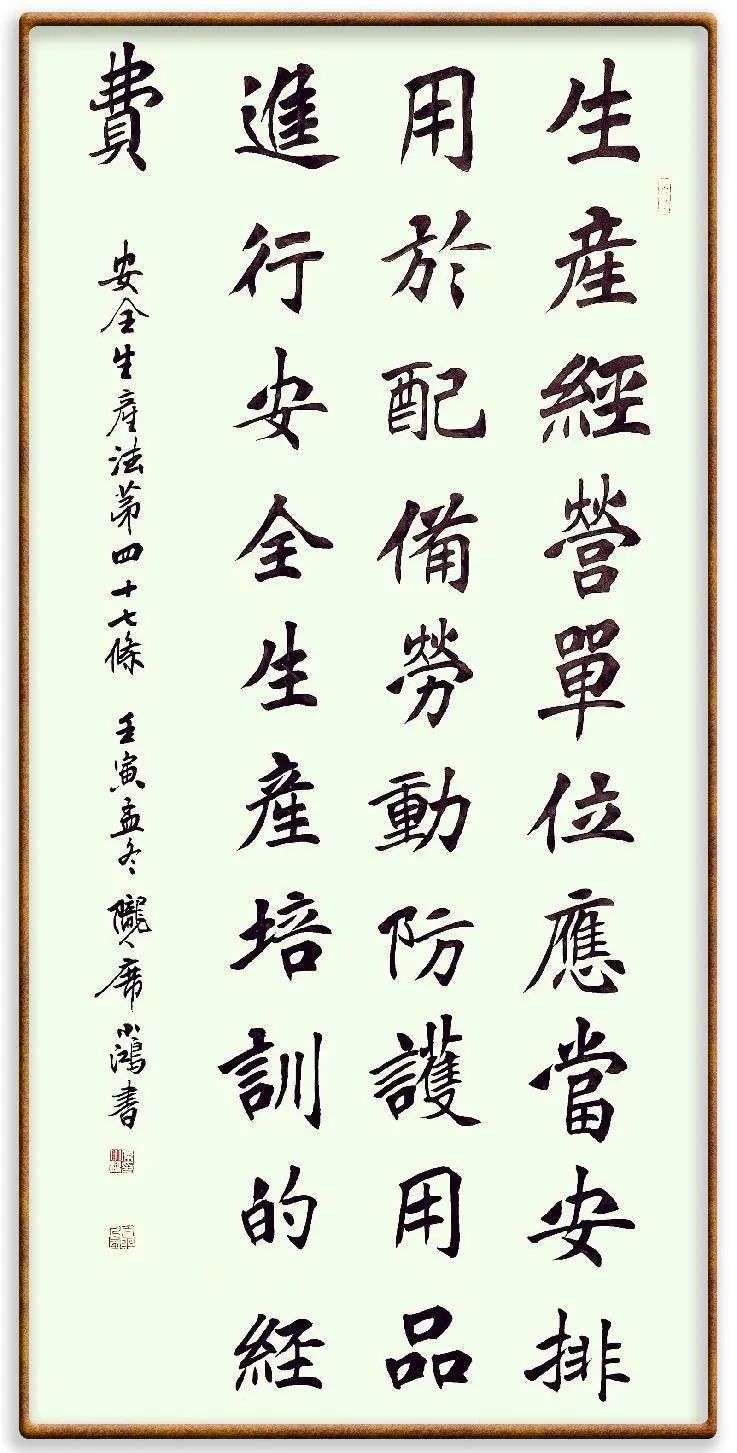 生產經營單位應當安排
用於配備勞動防護用品
進行安全生產培訓的經
費
安全生產法第四十七條 壬寅孟冬 隴人席小鴻書